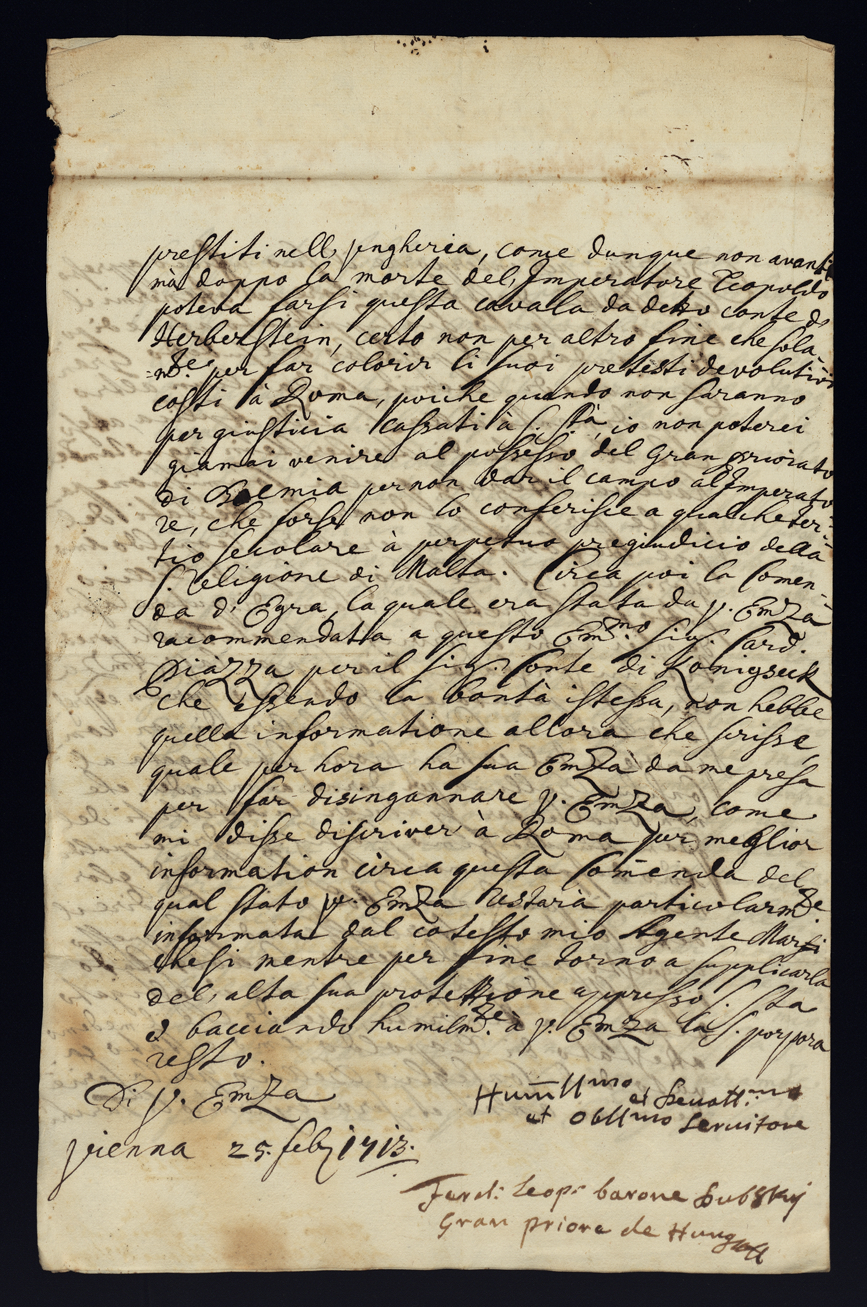 prestiti nell'Ungheria, come dunque non avanti
mà doppo la morte del Imperatore Leopoldo
poteva farsi questa cavala da detto conte di
Herberstein, certo non per altro fine che sola-
=mte per far colorir li suoi pretesti devolutivi
costi à Roma, poiche quando non saranno
per giusticia cassati à S. Stà, io non poterei
giamai venire al possesso del Gran Priorato
di Boemia per non dar il campo al Imperato-
re, che forse non lo conferisce a qualche ter-
tio secolare à perpetuo pregiudicio della
S. Religione di Malta. Circa poi la Comen-
da d' Egra, la quale era stata da V. Emza
racommendatta a questo Emmo Sig. Card.
Piazza per il Sig. Conte di Königseck
che essendo la bontà istessa, non hebbe
quella informatione allora che scrisse,
quale per hora ha sua Emza da me presa
per far disingannare V. Emza, come
mi disse discriver à Roma per meglior
information circa questa Comenda del
qual stato V. Emza restarà particolarmte
informata dal cotesto mio Agente Mar
chesi mentre per fine torno a supplicarla
del alta sua protettione appresso S. Sta
e bacciando humilmte à V. Emza la S. porpora
resto.
Di V. Emza
Humllmo et Devottmo
et Obllmo Servitore
Vienna 25. feb 1713.
Ferdi: Leop: barone Dubsky
Gran priore de Hung